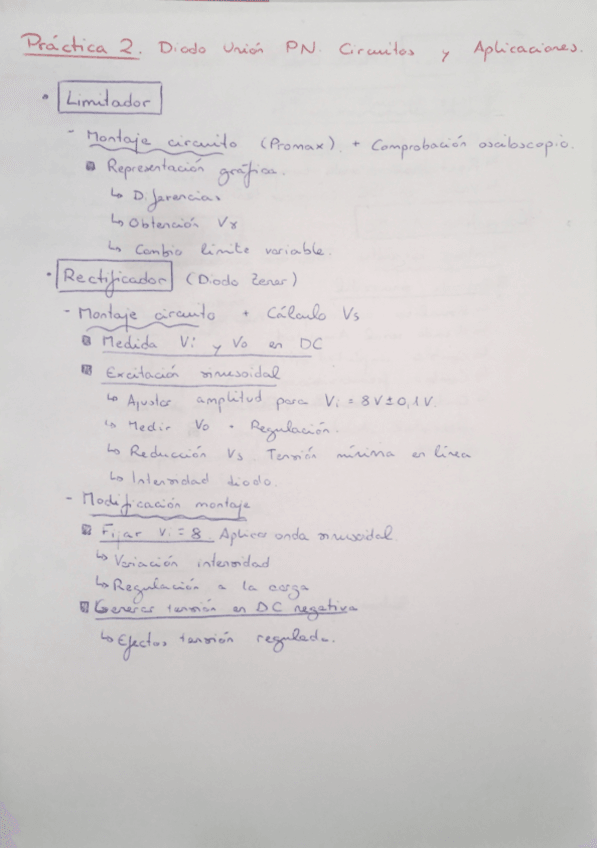 Práctica 2. Diodo Unión PN. Circuitos y Aplicaciones.
• Limitador
- Montaje circuito (Promax) + Comprobación osciloscopio.
Representación gráfica.
↳ Diferencias
↳ Obtención Vγ
↳ Cambio límite variable.
• Rectificador (Diodo Zener)
- Montaje circuito + Cálculo Vs
Medida Vi y Vo en DC
Excitación sinusoidal
↳ Ajustar amplitud para Vi = 8V ± 0,1V.
↳ Medir Vo. Regulación.
↳ Reducción Vs. Tensión mínima en línea
↳ Intensidad diodo.
- Modificación montaje
Fijar Vi = 8. Aplicar onda sinusoidal.
↳ Variación intensidad
↳ Regulación a la carga
Generar tensión en DC negativa
↳ Efectos tensión regulada.